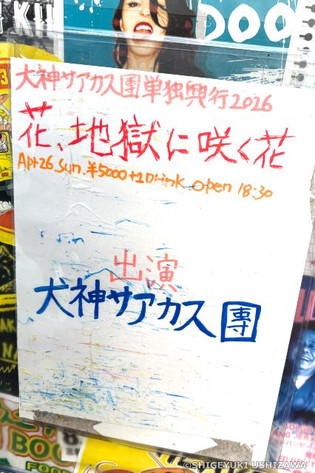 KI
DOO
犬神サアカス團単独興行2026
花、地獄に咲く花
Apr 26 sun. ¥5000+1Drink open 18:30
出演
犬神サアカス團
BOO
FOO
©SHIGEYUKI USHIZAWA